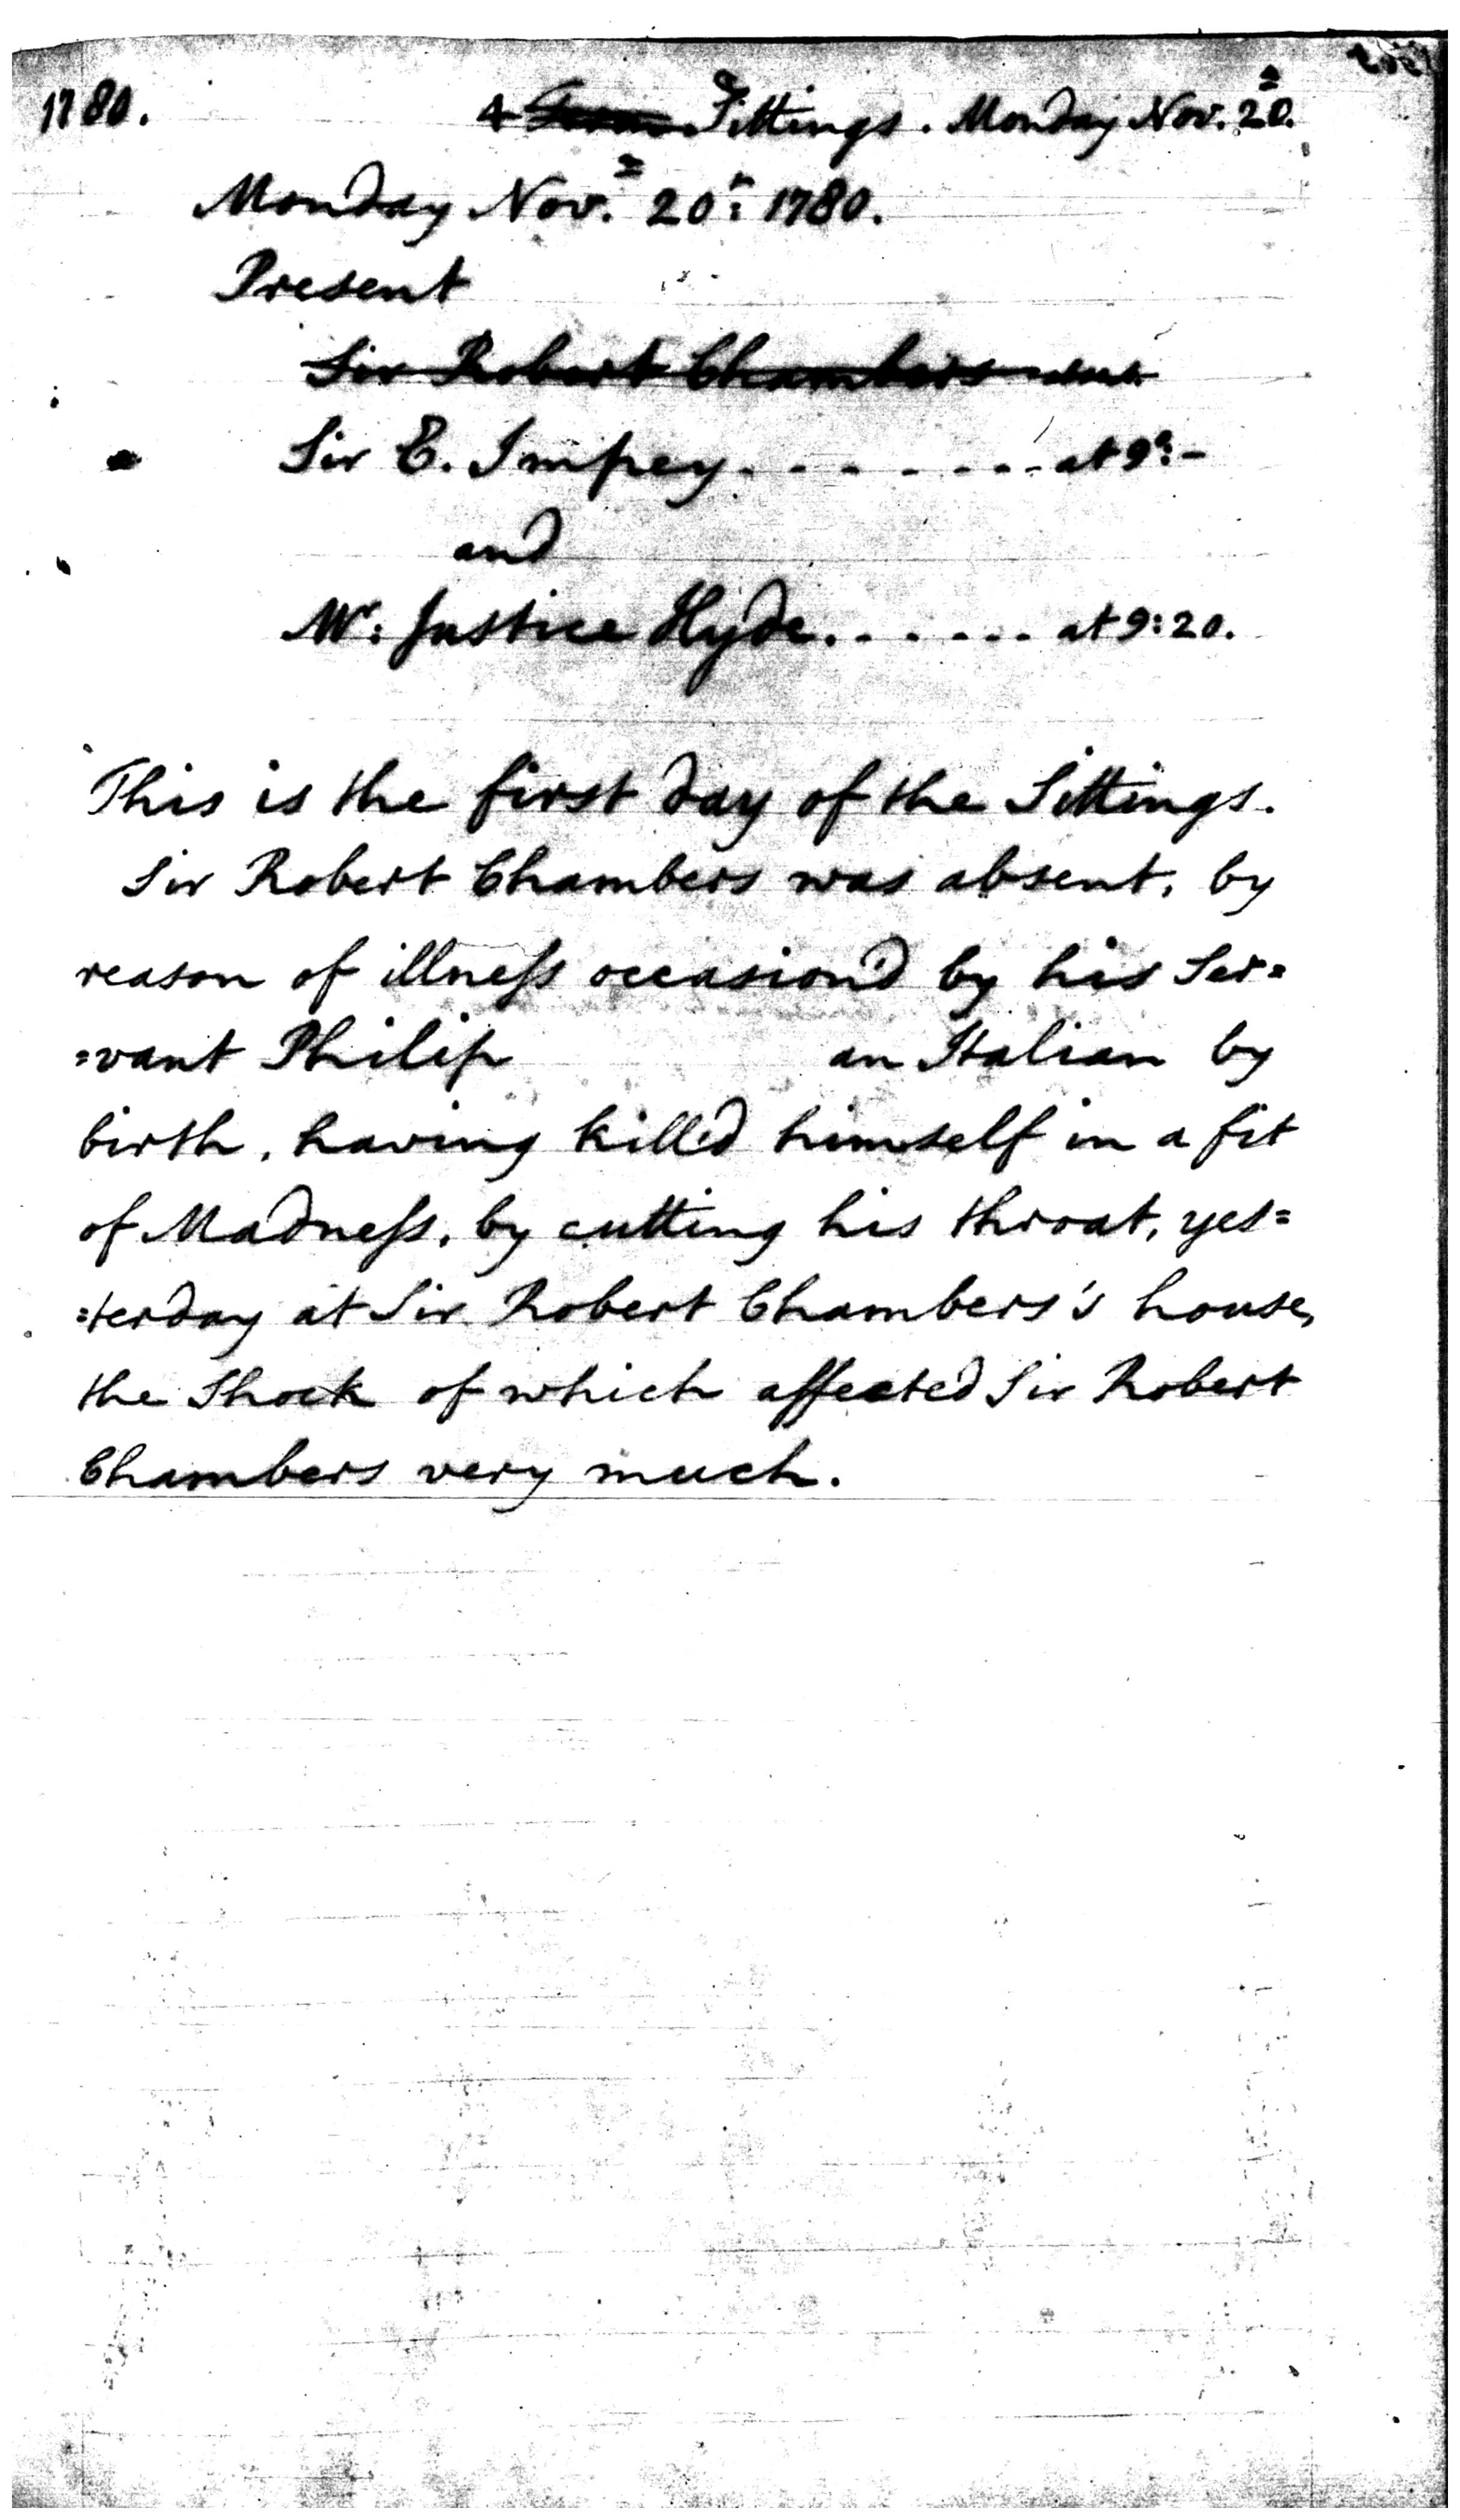 1780. 4 Sittings. Monday Nov. 20.
Monday Nov. 20: 1780.
Present
Sir Robert Chambers
Sir E. Impey. - - - - - - - at 9:-
and
Mr: Justice Hyde. - - - - - - at 9:20.
This is the first day of the Sittings.
Sir Robert Chambers was absent, by
reason of illneſs occasion'd by his Ser=
=vant Philip an Italian by
birth, having kill'd himself in a fit
of Madneſs, by cutting his throat, yes=
=terday at Sir Robert Chambers's house,
the Shock of which affected Sir Robert
Chambers very much.